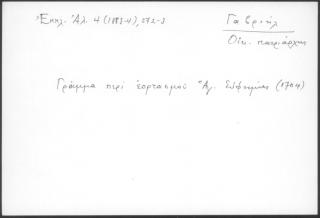 Ἐκκλ. Ἀλ. 4 (1883-4), 272-3
Γαβριήλ
Οἰκ. πατριάρχης
Γράμμα περὶ ἑορτασμοῦ Ἁγ. Εὐφημίας (1704)